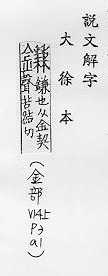 說文解字
大徐本
鍥鎌也从金契
聲苦結切
(金部
V14上
P3
a1)